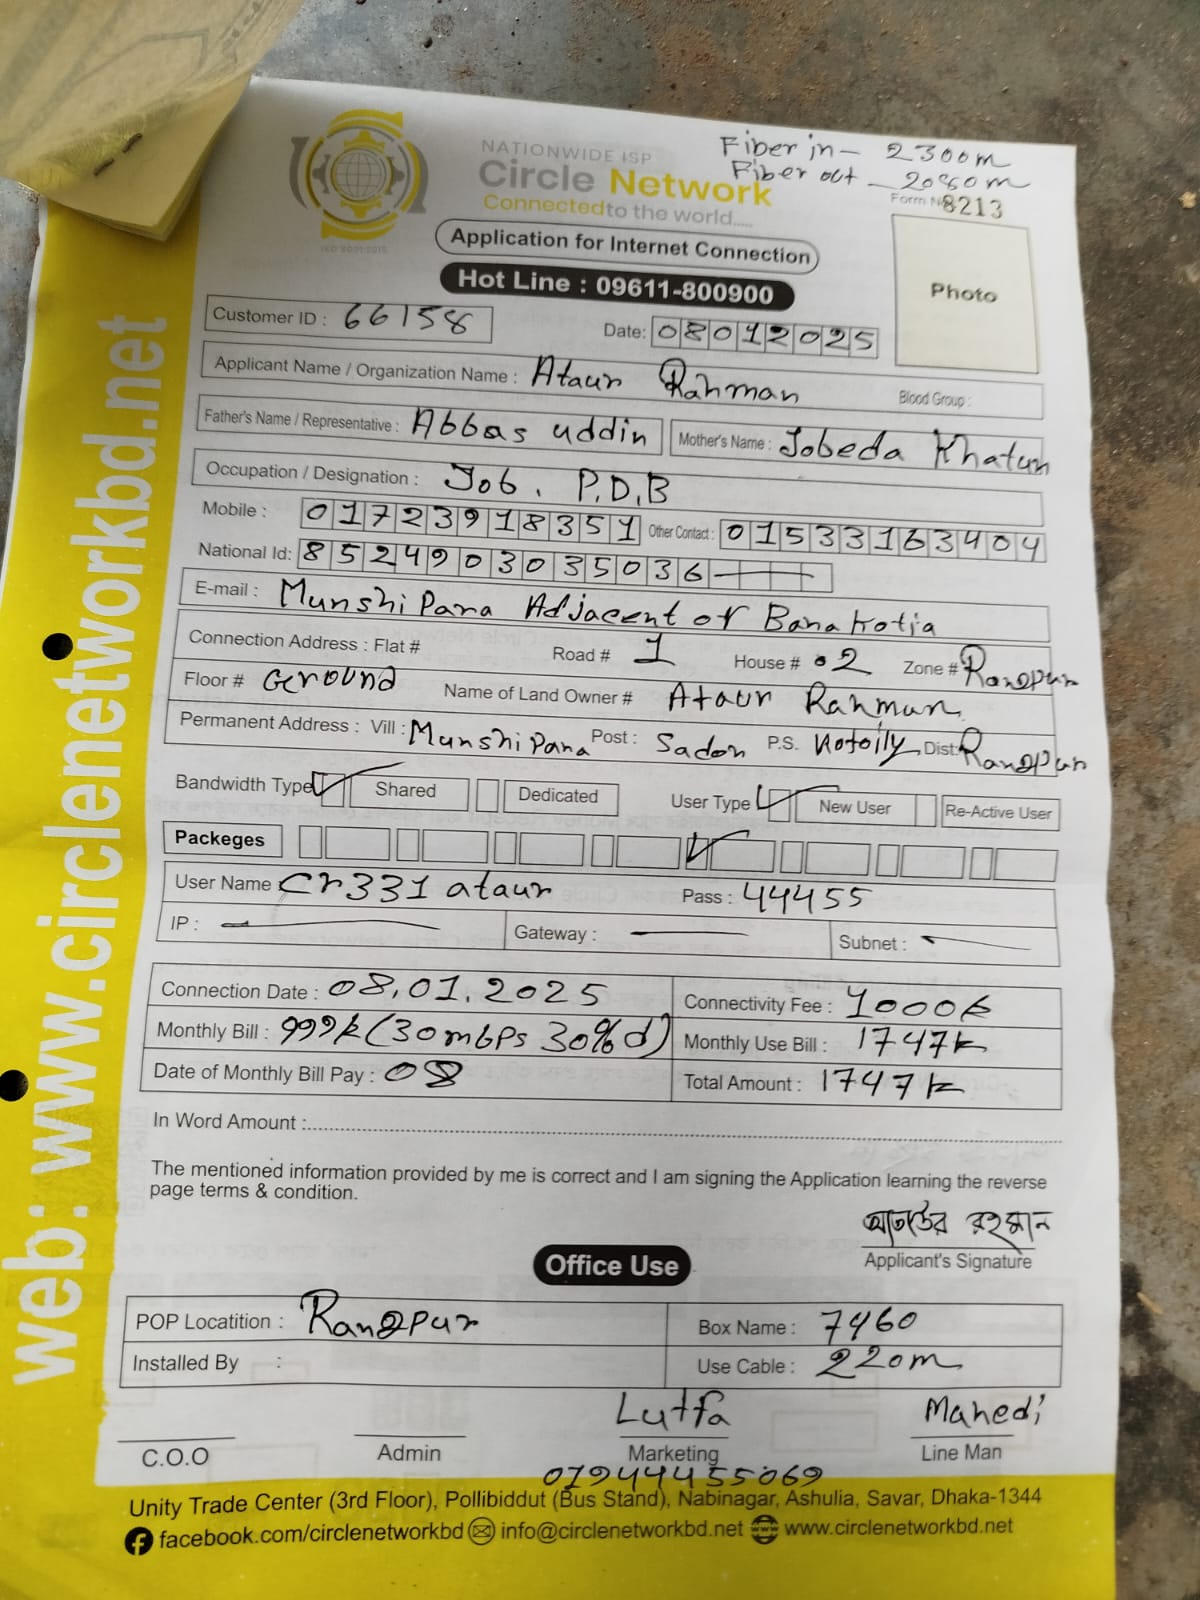 Fiber in - 2300m
Fiber out - 2080m
NATIONWIDE ISP
Circle Network
Connected to the world.....
Form No 8213
Application for Internet Connection
Hot Line : 09611-800900
Photo
Customer ID : 66158
Date: 08012025
Applicant Name / Organization Name : Ataur Rahman Blood Group :
Father's Name / Representative : Abbas uddin Mother's Name : Jobeda Khatun
Occupation / Designation : Job. P.D.B
Mobile : 01723918351 Other Contact : 01533163404
National Id: 8524903035036
E-mail : Munshi Para Adjacent of Banakotia
Connection Address : Flat # Road # 1 House # 02 Zone # Rangpur
Floor # Ground Name of Land Owner # Ataur Rahman
Permanent Address : Vill : Munshi Para Post : Sador P.S. Kotoily Dist: Rangpur
Bandwidth Type Shared Dedicated User Type New User Re-Active User
Packeges
User Name Cr331 ataur Pass : 44455
IP : Gateway : Subnet :
Connection Date : 08.01.2025 Connectivity Fee : 1000k
Monthly Bill : 999k (30mbps 30% d) Monthly Use Bill : 1747k
Date of Monthly Bill Pay : 08 Total Amount : 1747k
In Word Amount :
The mentioned information provided by me is correct and I am signing the Application learning the reverse
page terms & condition.
আতাউর রহমান
Applicant's Signature
Office Use
POP Locatition : Rangpur Box Name : 7460
Installed By : Use Cable : 220m
Lutfa Mahedi
C.O.O Admin Marketing Line Man
01944455069
Unity Trade Center (3rd Floor), Pollibiddut (Bus Stand), Nabinagar, Ashulia, Savar, Dhaka-1344
facebook.com/circlenetworkbd info@circlenetworkbd.net www.circlenetworkbd.net
web: www.circlenetworkbd.net